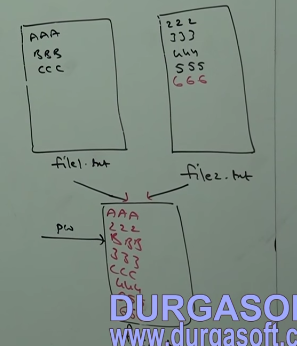 AAA
BBB
CCC
file1.txt
222
333
444
555
666
file2.txt
PW
AAA
222
BBB
333
CCC
444
DURGASOF
www.durgasoft.c